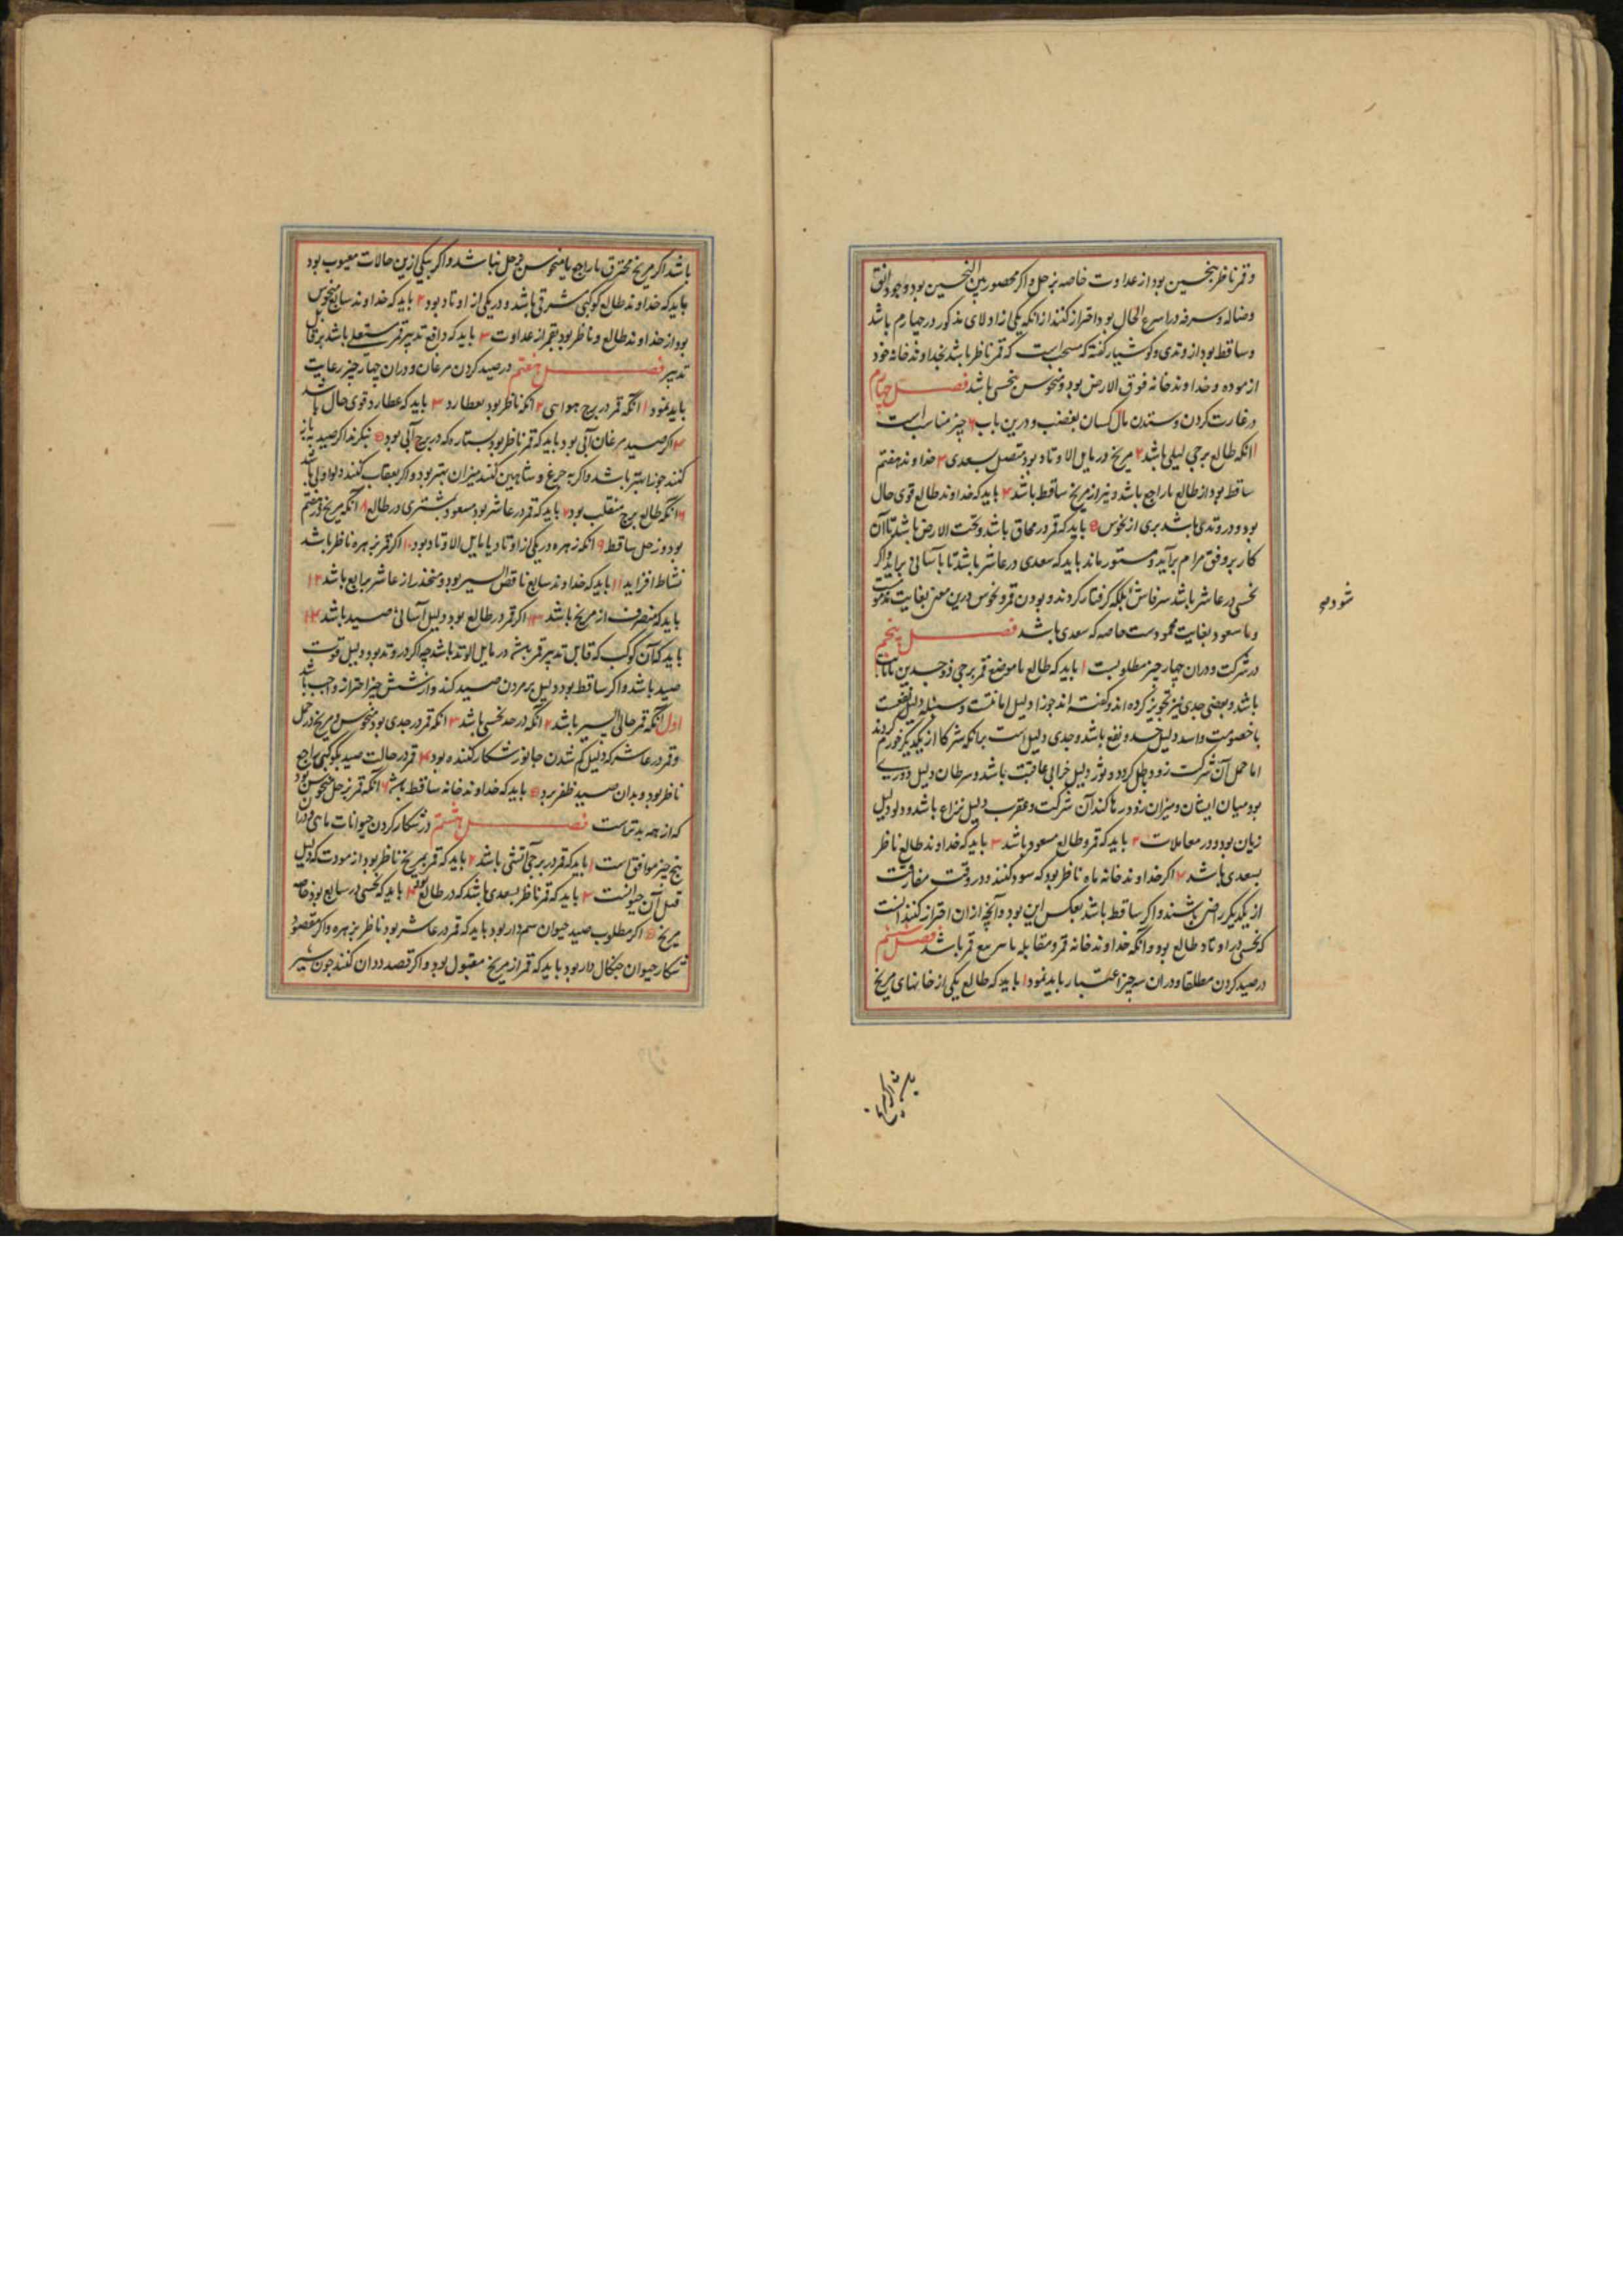 و قمر ناظر بنحسین بود از عداوت خاصه بزحل و اگر محصور بین النحسین بود و جود اتفق
وضاله و سرفه در اسرع الحال بود احتراز کنند از انکه یکی از اولای مذکور در چهارم باشد
و ساقط بود از وتدی و کوشیار کفته که مستحب است که قمر ناظر باشد بخداوند خانه خود
از موده و خداوند خانه فوق الارض بود و منحوس بنحسی باشد فصل چهارم
در غارت کردن و ستدن مال کسان بغضب و درین باب ۶ چیز مناسب است
۱ انکه طالع برجی لیلی باشد ۲ مریخ در مایل الاوتاد بود متصل بسعدی ۳ خداوند هفتم
ساقط بود از طالع یا راجع باشد و نیز از مریخ ساقط باشد ۴ باید که خداوند طالع قوی حال
بود و در وتدی باشد بری از نحوس ۵ باید که قمر در محاق باشد و تحت الارض باشد تا آن
کار بر وفق مرام برآید و مستور ماند باید که سعدی در عاشر باشد تا باسانی براید و اگر
نحسی در عاشر باشد سر فاش بلکه کرفتار کردند و بودن قمر و نحوس درین معنی بغایت مذموم
و با سعود بغایت محمودست خاصه که سعدی باشد فصل پنجم
در شرکت و دران چهار چیز مطلوبست ۱ باید که طالع یا موضع قمر برجی ذو جسدین
باشد و بعضی جدی نیز تجویز کرده اند و کفته اند جوزا دلیل امانت و سنبله دلیل منفعت
با خصومت و اسد دلیل حسد و نفع باشد و جدی دلیل است برانکه شرکا از یکدیکر خورم کردند
اما حمل آن شرکت زود بطل کردد و ثور دلیل خرابی عاقبت باشد و سرطان دلیل دوری
بود میان ایشان و میزان زود رها کند آن شرکت و عقرب دلیل نزاع باشد و دلو دلیل
زیان بود در معاملات ۲ باید که قمر و طالع مسعود باشد ۳ باید که خداوند طالع ناظر
بسعدی باشد ۴ اکر خداوند خانه ماه ناظر بود که سود کنند و در وقت مفارقت
از یکدیکر راضی باشند و اکر ساقط باشد بعکس این بود و آنچه از ان احتراز کنند انست
که نحسی در اوتاد طالع بود و انکه خداوند خانه قمر و مقابله یا مربع قمر باشد فصل ششم
در صید کردن مطلقا و دران سه چیز اعتبار باید نمود ۱ باید که طالع یکی از خانهای مریخ
باشد اکر مریخ محترق یا راجع یا منحوس زحل نباشد و اکر بیکی ازین حالات معیوب بود
باید که خداوند طالع کوکبی شرقی باشد و در یکی از اوتاد بود ۲ باید که خداوند سابع منحوس
بود از خداوند طالع و ناظر بود بقمر از عداوت ۳ باید که دافع تدبیر قمر مستعلی باشد بر قابل
تدبیر فصل هفتم در صید کردن مرغان و دران چهار چیز رعایت
باید نمود ۱ انکه قمر در برج هوایی ۲ انکه ناظر بود بعطارد ۳ باید که عطارد قوی حال باشد
۴ اکر صید مرغان آبی بود باید که قمر ناظر بود بستاره که در برج آبی بود ۵ بنکرند اکر صید بباز
کنند جوزا بهتر باشد و اکر به چرغ و شاهین کنند میزان بهتر بود و اکر بعقاب کنند دلو اولی باشد
۶ انکه طالع برج منقلب بود ۷ باید که قمر در عاشر بود مسعود و مشتری در طالع ۸ انکه مریخ در هفتم
بود و زحل ساقط ۹ انکه زهره در یکی از اوتاد یا مایل الاوتاد بود ۱۰ اکر قمر بزهره ناظر باشد
نشاط افزاید ۱۱ باید که خداوند سابع ناقص السیر بود و منحدر از عاشر برابع باشد ۱۲
باید که منصرف از مریخ باشد ۱۳ اکر قمر در طالع بود دلیل آسانی صید باشد ۱۴
باید که آن کوکب که قابل تدبیر قمر باشد در مایل الوتد باشد چه اکر در وتد بود دلیل قوت
صید باشد و اکر ساقط بود دلیل بر مردن صید کند و از شش چیز احتراز واجب باشد
اول انکه قمر خالی السیر باشد ۲ انکه در حد نحسی باشد ۳ انکه قمر در جدی بود منحوس و مریخ در حمل
و قمر در عاشر که دلیل کم شدن جانور شکار کننده بود ۴ قمر در حالت صید بکوکبی راجع
ناظر بود و بدان صید ظفر برد ۵ باید که خداوند خانه ساقط باشد ۶ انکه قمر بزحل منحوس بود
که از همه بدترست فصل هشتم در شکار کردن حیوانات
پنج چیز موافق است ۱ باید که قمر در برجی آتشی باشد ۲ باید که قمر بمریخ ناظر بود از مودت که دلیل
قتل آن حیوانست ۳ باید که قمر ناظر بسعدی باشد که در طالع بود ۴ باید که نحسی در سابع بود خاصه
مریخ ۵ اکر مطلوب صید حیوان سم دار بود باید که قمر در عاشر بود ناظر بزهره و اکر مقصود
شکار حیوان چنکال دار بود باید که قمر از مریخ مقبول بود و اکر قصد ددان کنند چون شیر